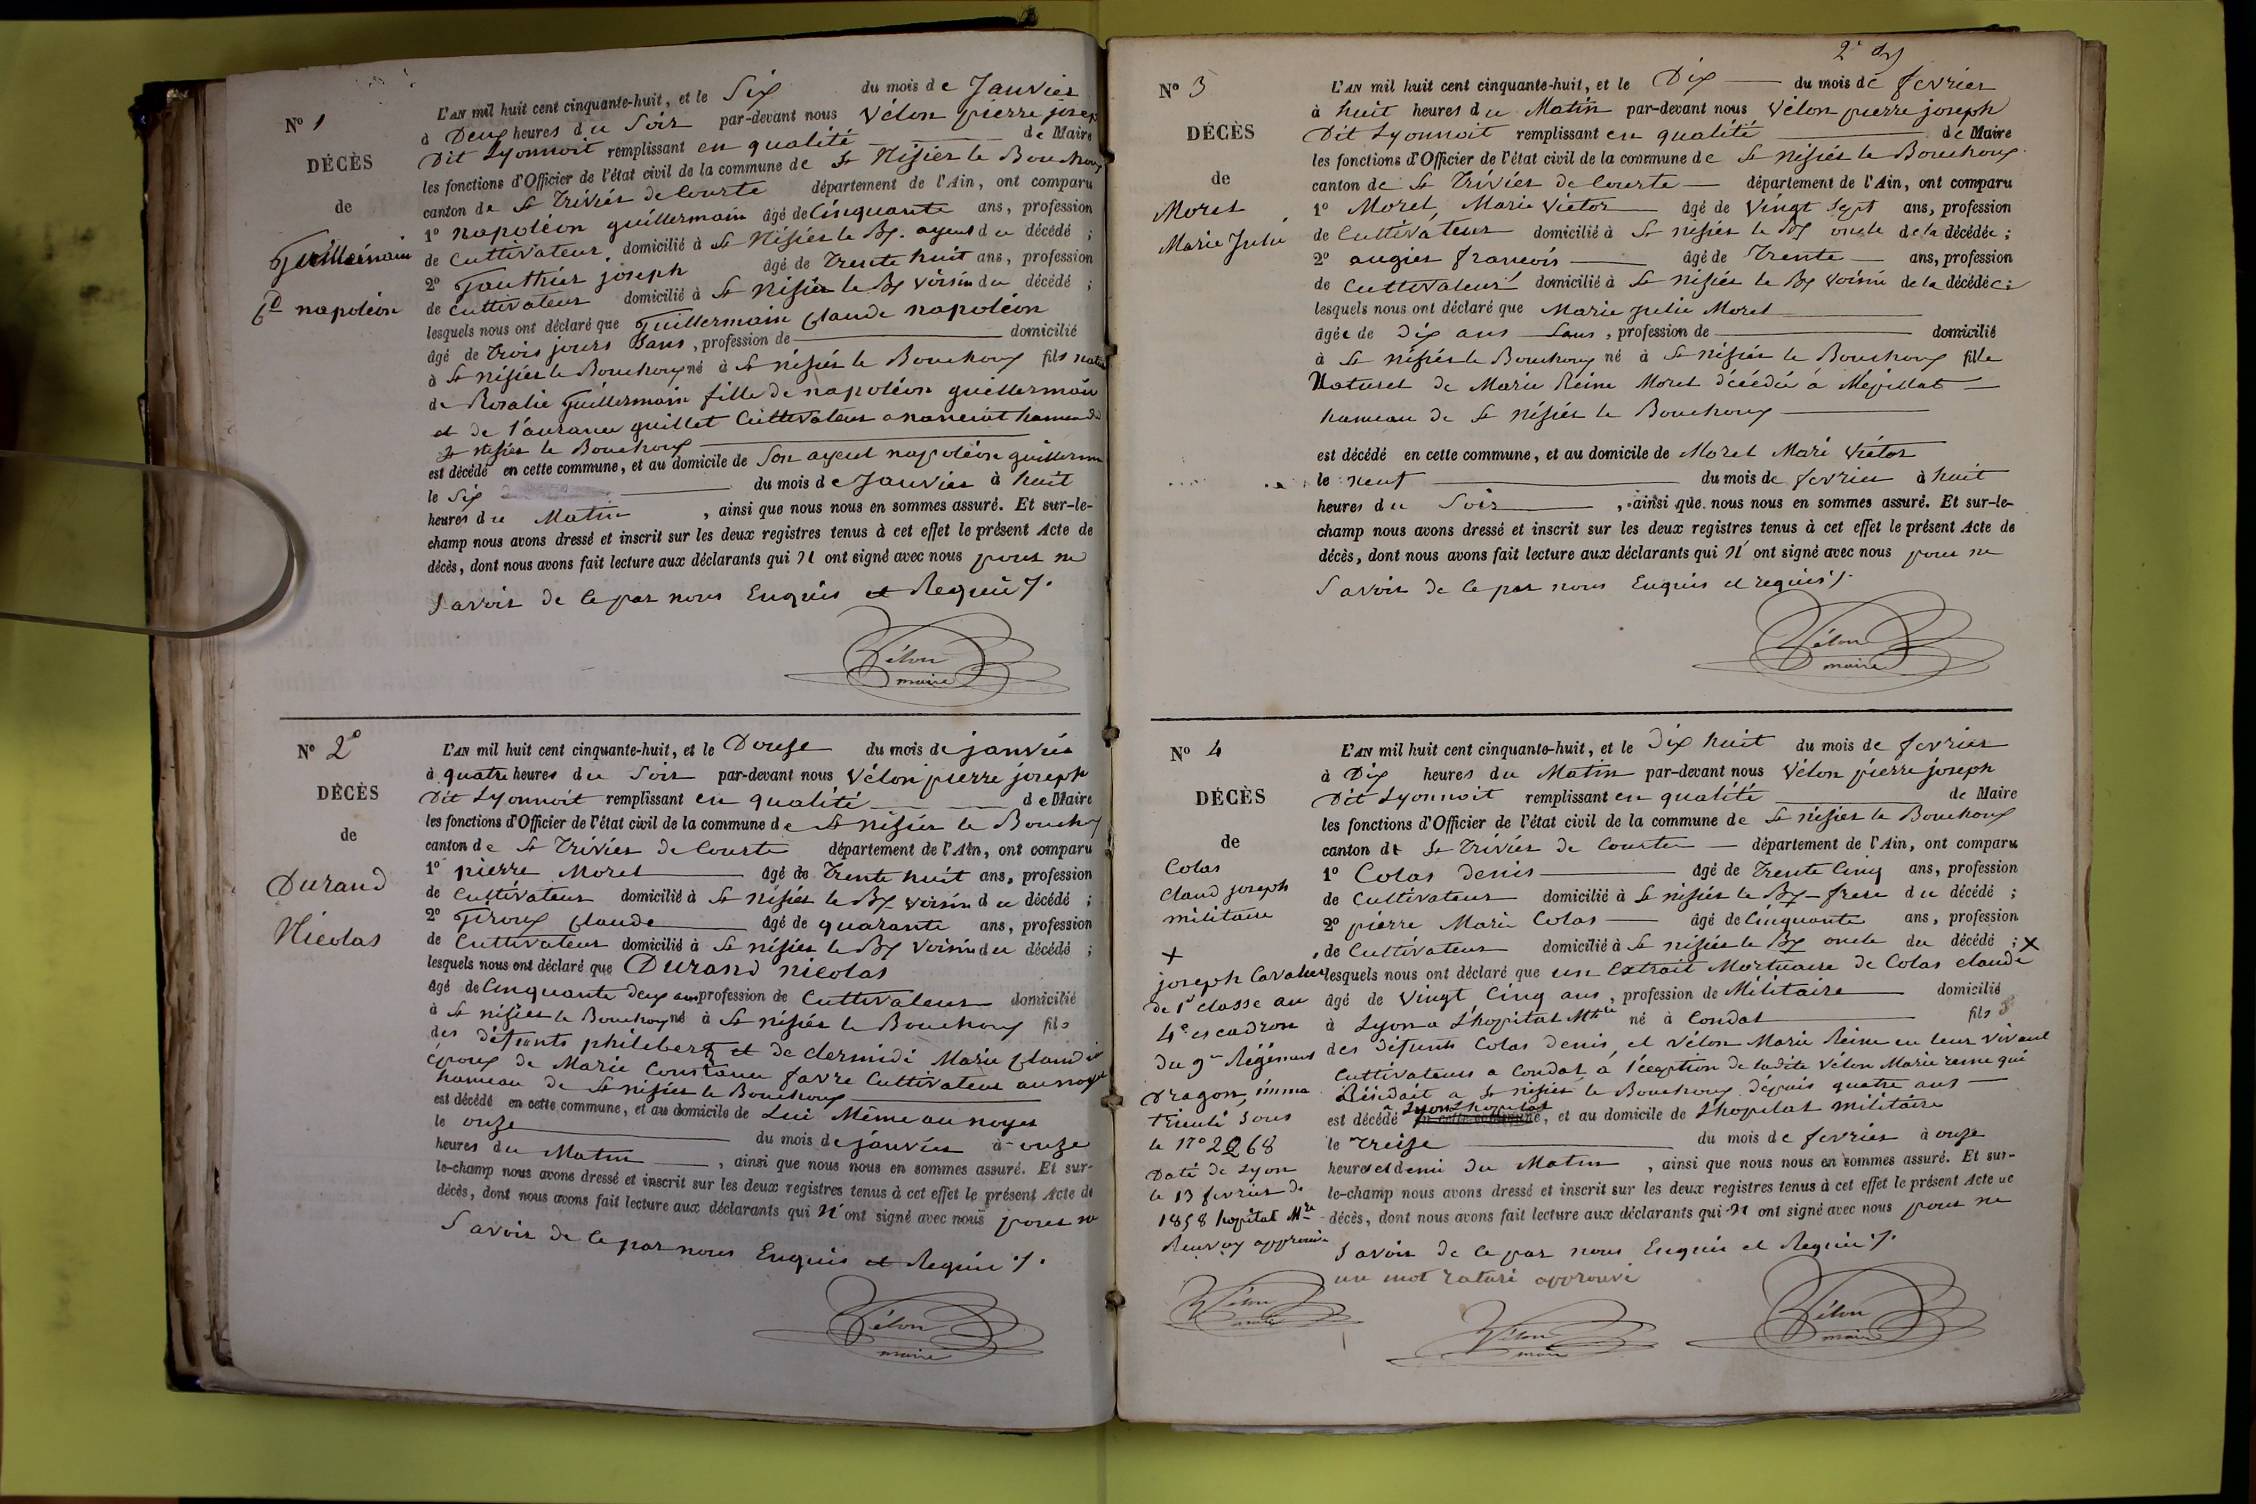 Nº 1
DÉCÈS
de
Guillermain
Cd napoléon
L'AN mil huit cent cinquante-huit, et le Six du mois de Janvier
à Deux heures du Soir par-devant nous Vélon pierre joseph
Dit Lyonnoit remplissant en qualité de Maire
les fonctions d'Officier de l'état civil de la commune de St Nisiér le Bouchoux
canton de St Triviér de Courte département de l'Ain, ont comparu
1º napoléon guillermain âgé de Cinquante ans, profession
de Cultivateur domicilié à St Nisiér le Bx. ayeul du décédé ;
2º Gauthier joseph âgé de Trente huit ans, profession
de Cultivateur domicilié à St Nisiér le Bx voisin du décédé ;
lesquels nous ont déclaré que Guillermain Claude napoléon
âgé de trois jours Sans, profession de domicilié
à St nisiér le Bouchoux né à St nisiér le Bouchoux fils
de Rosalie Guillermain fille de napoléon guillermain
et de guillet Cultivateur a hameau de
St nisiér le Bouchoux
est décédé en cette commune, et au domicile de Son ayeul napoléon guillermain
le Six du mois de Janvier à huit
heures du Matin, ainsi que nous nous en sommes assuré. Et sur-le-
champ nous avons dressé et inscrit sur les deux registres tenus à cet effet le présent Acte de
décès, dont nous avons fait lecture aux déclarants qui N ont signé avec nous pour ne
Savoir de Ce par nous Enquis et Requis /.
Vélon
maire
Nº 2º
DÉCÈS
de
Durand
Nicolas
L'AN mil huit cent cinquante-huit, et le Douze du mois de janviér
à quatre heures du Soir par-devant nous Vélon pierre joseph
Dit Lyonnoit remplissant en qualité de Maire
les fonctions d'Officier de l'état civil de la commune de St nisiér le Bouchoux
canton de St Triviér de Courte département de l'Ain, ont comparu
1º pierre Morel âgé de Trente huit ans, profession
de Cultivateur domicilié à St Nisiér le Bx voisin du décédé ;
2º Giroux Claude âgé de quarante ans, profession
de Cultivateur domicilié à St nisiér le Bx Voisin du décédé ;
lesquels nous ont déclaré que Durand nicolas
âgé de Cinquante deux ans profession de Cultivateur domicilié
à St nisiér le Bouchoux né à St nisiér le Bouchoux fils
des défunts philibert et de Marie
époux de Marie Constance favre Cultivateur au noyer
hameau de St nisiér le Bouchoux
est décédé en cette commune, et au domicile de Lui Même au noyer
le onze du mois de janviér à onze
heures du Matin, ainsi que nous nous en sommes assuré. Et sur-
le-champ nous avons dressé et inscrit sur les deux registres tenus à cet effet le présent Acte de
décès, dont nous avons fait lecture aux déclarants qui N' ont signé avec nous pour ne
Savoir de Ce par nous Enquis et Requis /.
Vélon
maire
2e
Nº 3
DÉCÈS
de
Morel
Marie Julie
L'AN mil huit cent cinquante-huit, et le Dix du mois de fevrier
à huit heures du Matin par-devant nous Vélon pierre joseph
Dit Lyonnoit remplissant en qualité de Maire
les fonctions d'Officier de l'état civil de la commune de St nisiér le Bouchoux
canton de St Triviér de Courte département de l'Ain, ont comparu
1º Morel, Marie Victor âgé de Vingt Sept ans, profession
de Cultivateur domicilié à St nisiér le Bx oncle de la décédée ;
2º augier francois âgé de Trente ans, profession
de Cultivateur domicilié à St nisiér le Bx Voisin de la décédée ;
lesquels nous ont déclaré que Marie Julie Morel
âgée de Dix ans Sans, profession de domicilié
à St nisiér le Bouchoux né à St nisiér le Bouchoux fille
Naturel de Marie Reine Morel décédée à Mézillat
hameau de St nisiér le Bouchoux
est décédé en cette commune, et au domicile de Morel Marie Victor
le neuf du mois de fevrier à huit
heures du Soir, ainsi que nous nous en sommes assuré. Et sur-le-
champ nous avons dressé et inscrit sur les deux registres tenus à cet effet le présent Acte de
décès, dont nous avons fait lecture aux déclarants qui N' ont signé avec nous pour ne
Savoir de Ce par nous Enquis et requis /.
Vélon
maire
Nº 4
DÉCÈS
de
Colas
Claud joseph
militaire
+
joseph Cavalier
de 1e Classe au
4e escadron
du 9me Régiment
Dragon, imma
triculé Sous
le nº 2268
Daté de Lyon
le 13 fevrier de
1858 hopital Mre
Renvoy approuvé
Vélon
maire
L'AN mil huit cent cinquante-huit, et le Dix huit du mois de fevrier
à Dix heures du Matin par-devant nous Vélon pierre joseph
Dit Lyonnoit remplissant en qualité de Maire
les fonctions d'Officier de l'état civil de la commune de St nisiér le Bouchoux
canton de St Triviér de Courte département de l'Ain, ont comparu
1º Colas denis âgé de Trente Cinq ans, profession
de Cultivateur domicilié à St nisiér le Bx frere du décédé ;
2º pierre Marie Colas âgé de Cinquante ans, profession
de Cultivateur domicilié à St nisiér le Bx oncle du décédé ; +
lesquels nous ont déclaré que un Extrait Mortuaire de Colas claude
âgé de Vingt Cinq ans, profession de Militaire domicilié
à Lyon a L'hopital Mre né à Condal fils
des défunts Colas Denis, et Vélon Marie Reine en leur vivant
Cultivateurs a Condal à l'éception de ladite Vélon Marie reine qui
Résidait a St nisiér le Bouchoux depuis quatre ans
est décédé a Lyon L'hopital en cette commune, et au domicile de L'hopital militaire
le Treize du mois de fevrier à onze
heures et demi du Matin, ainsi que nous nous en sommes assuré. Et sur-
le-champ nous avons dressé et inscrit sur les deux registres tenus à cet effet le présent Acte de
décès, dont nous avons fait lecture aux déclarants qui N ont signé avec nous pour ne
Savoir de Ce par nous Enquis et Requis /.
un mot raturé approuvé
Vélon
maire
Vélon
maire